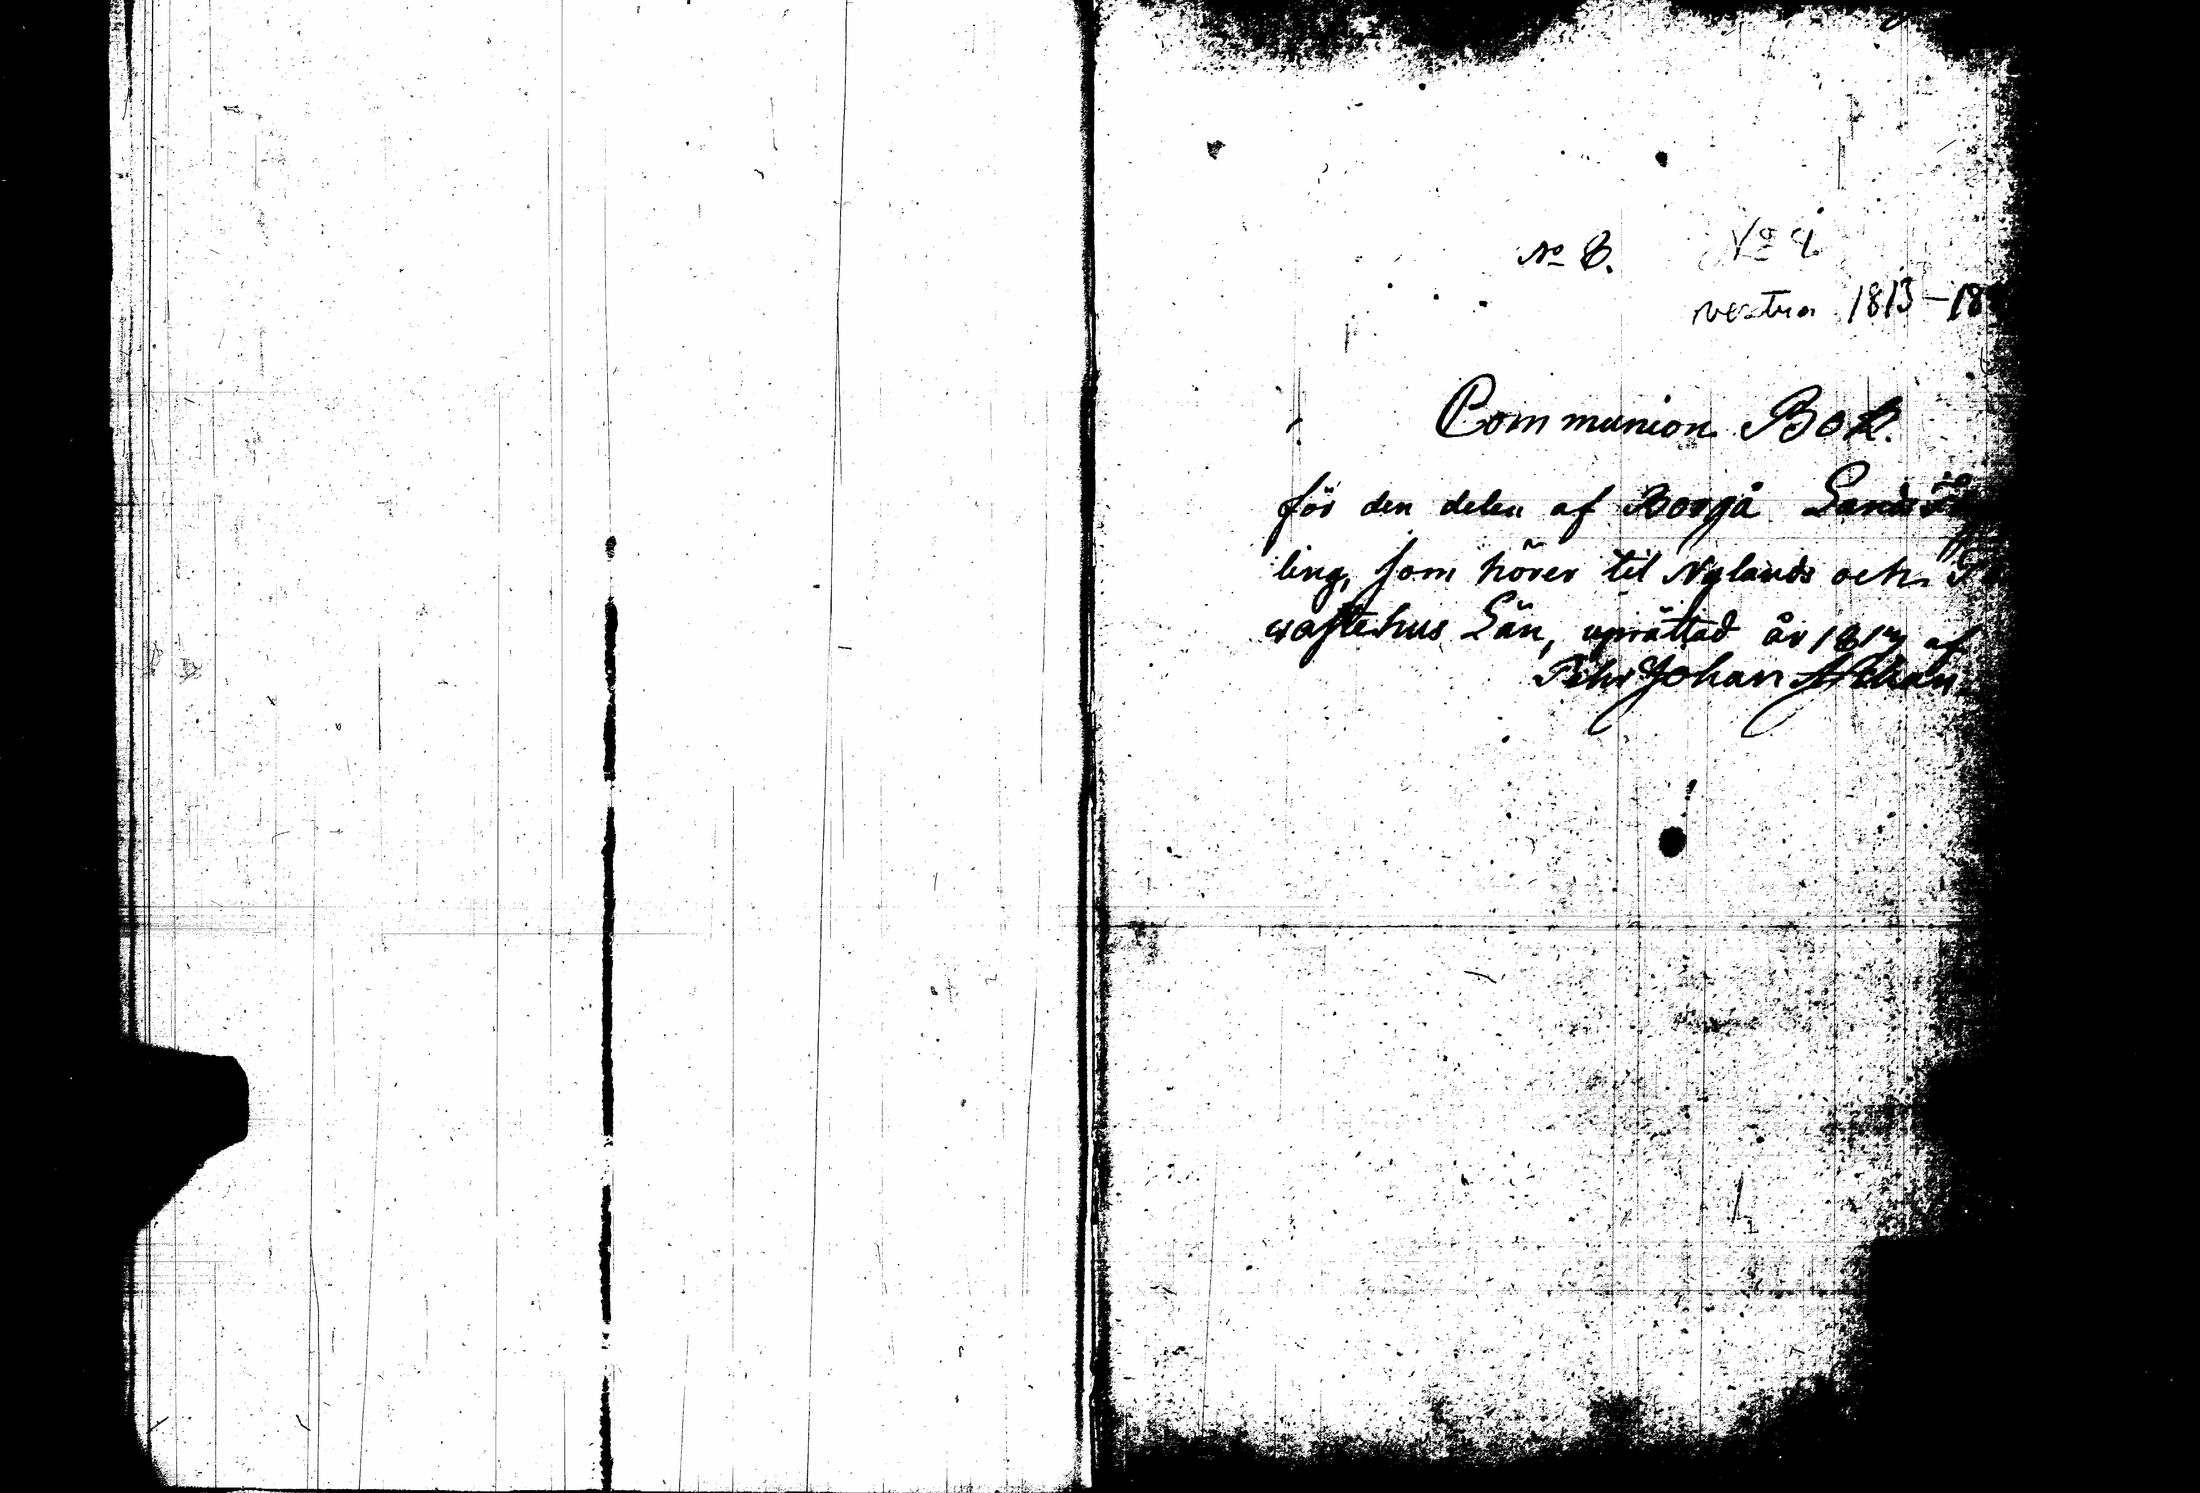 No 8. No 4
vestra 1813–18
Communion Bok.
för den delen af Borgå Lands
ling, som hörer til Nylands och
wastehus Län, uprättad år 1817 af
Pehr Johan